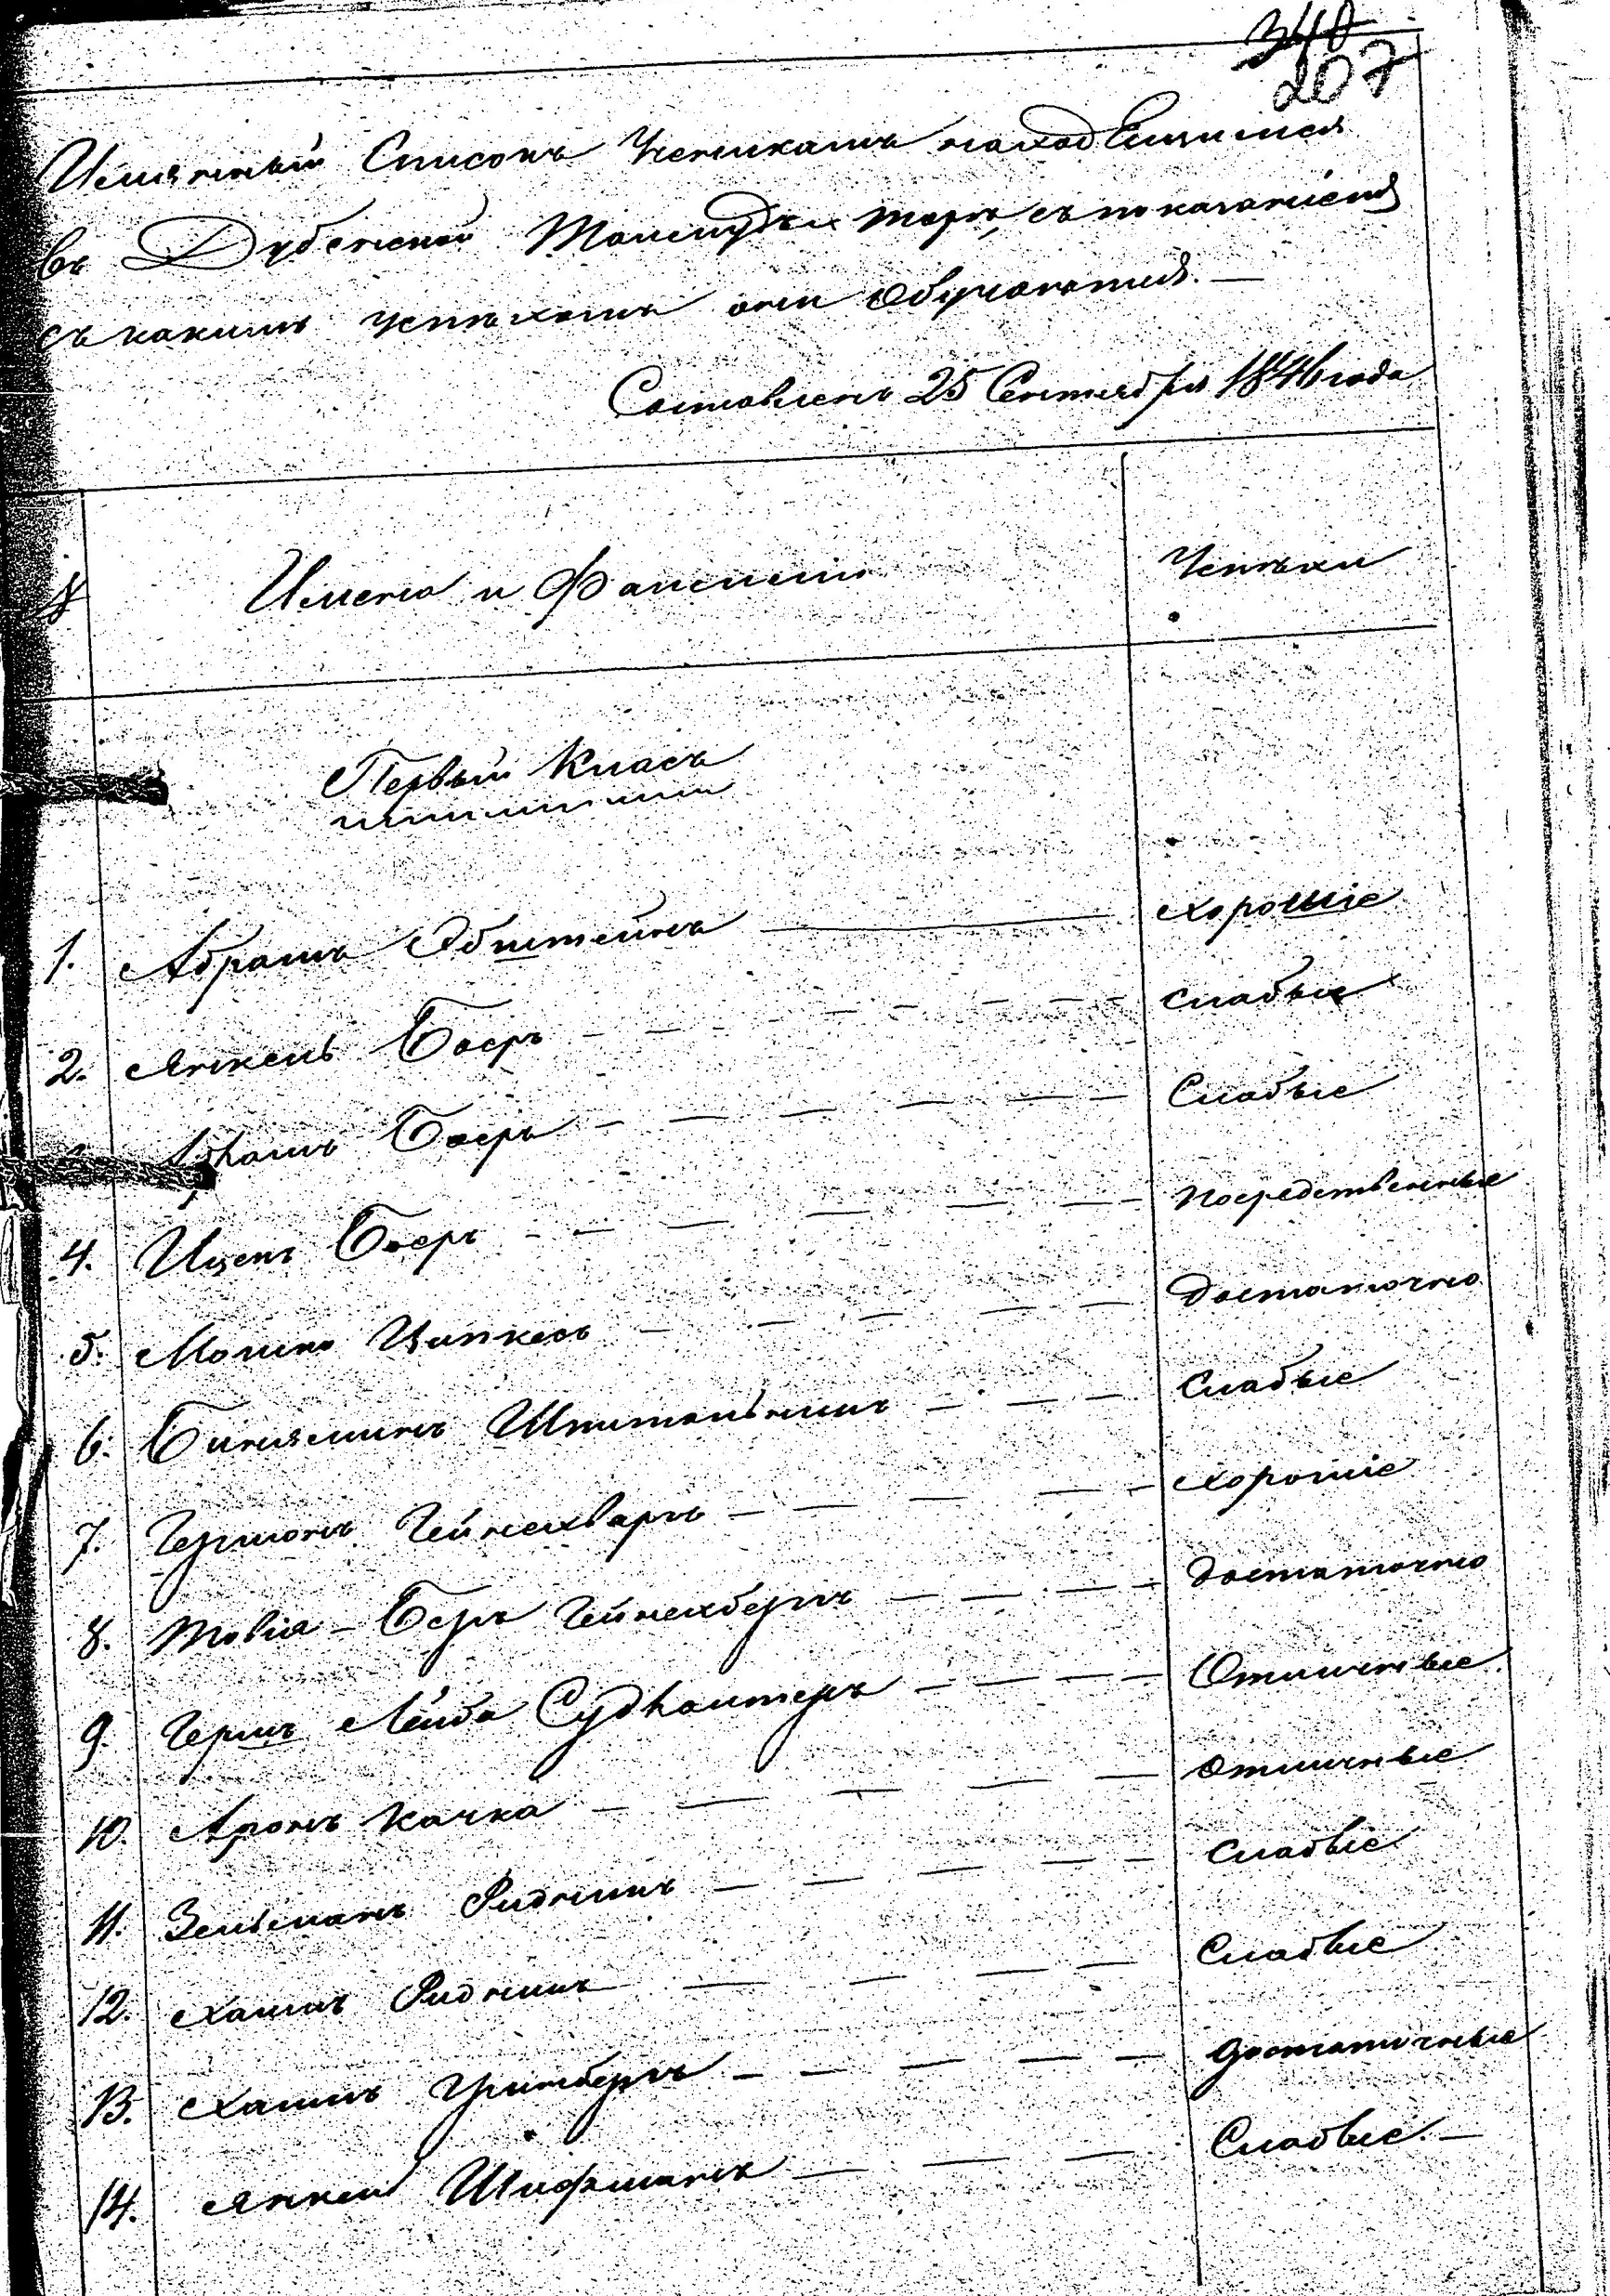 340
207
Именный Списокъ Ученикамъ находящимся
въ Дубенской Талмудъ торъ, съ показаніемъ
съ какимъ успѣхомъ они обучаются. —
Составленъ 25 Сентября 1846 года
№ Имена и Фамиліи Успѣхи
Первый Класъ
1. Абрамъ Эбштейнъ — хорошіе
2. Янкель Боеръ — слабые
Абрамъ Боеръ — Слабые
4. Ицекъ Боеръ — посредственные
5. Мошко Ципкесъ — достаточно
6. Биняминъ Шпитальникъ — Слабые
7. Гершонъ — хорошіе
8. Товія – Беръ — достаточно
9. Гершъ Лейба — Отличные
10. Аронъ Качка — отличные
11. Зельманъ Ридникъ — слабые
12. Хаимъ Ридникъ — Слабые
13. Хаимъ Гринбергъ — достаточные
14. Янкель Шифманъ — Слабые. —